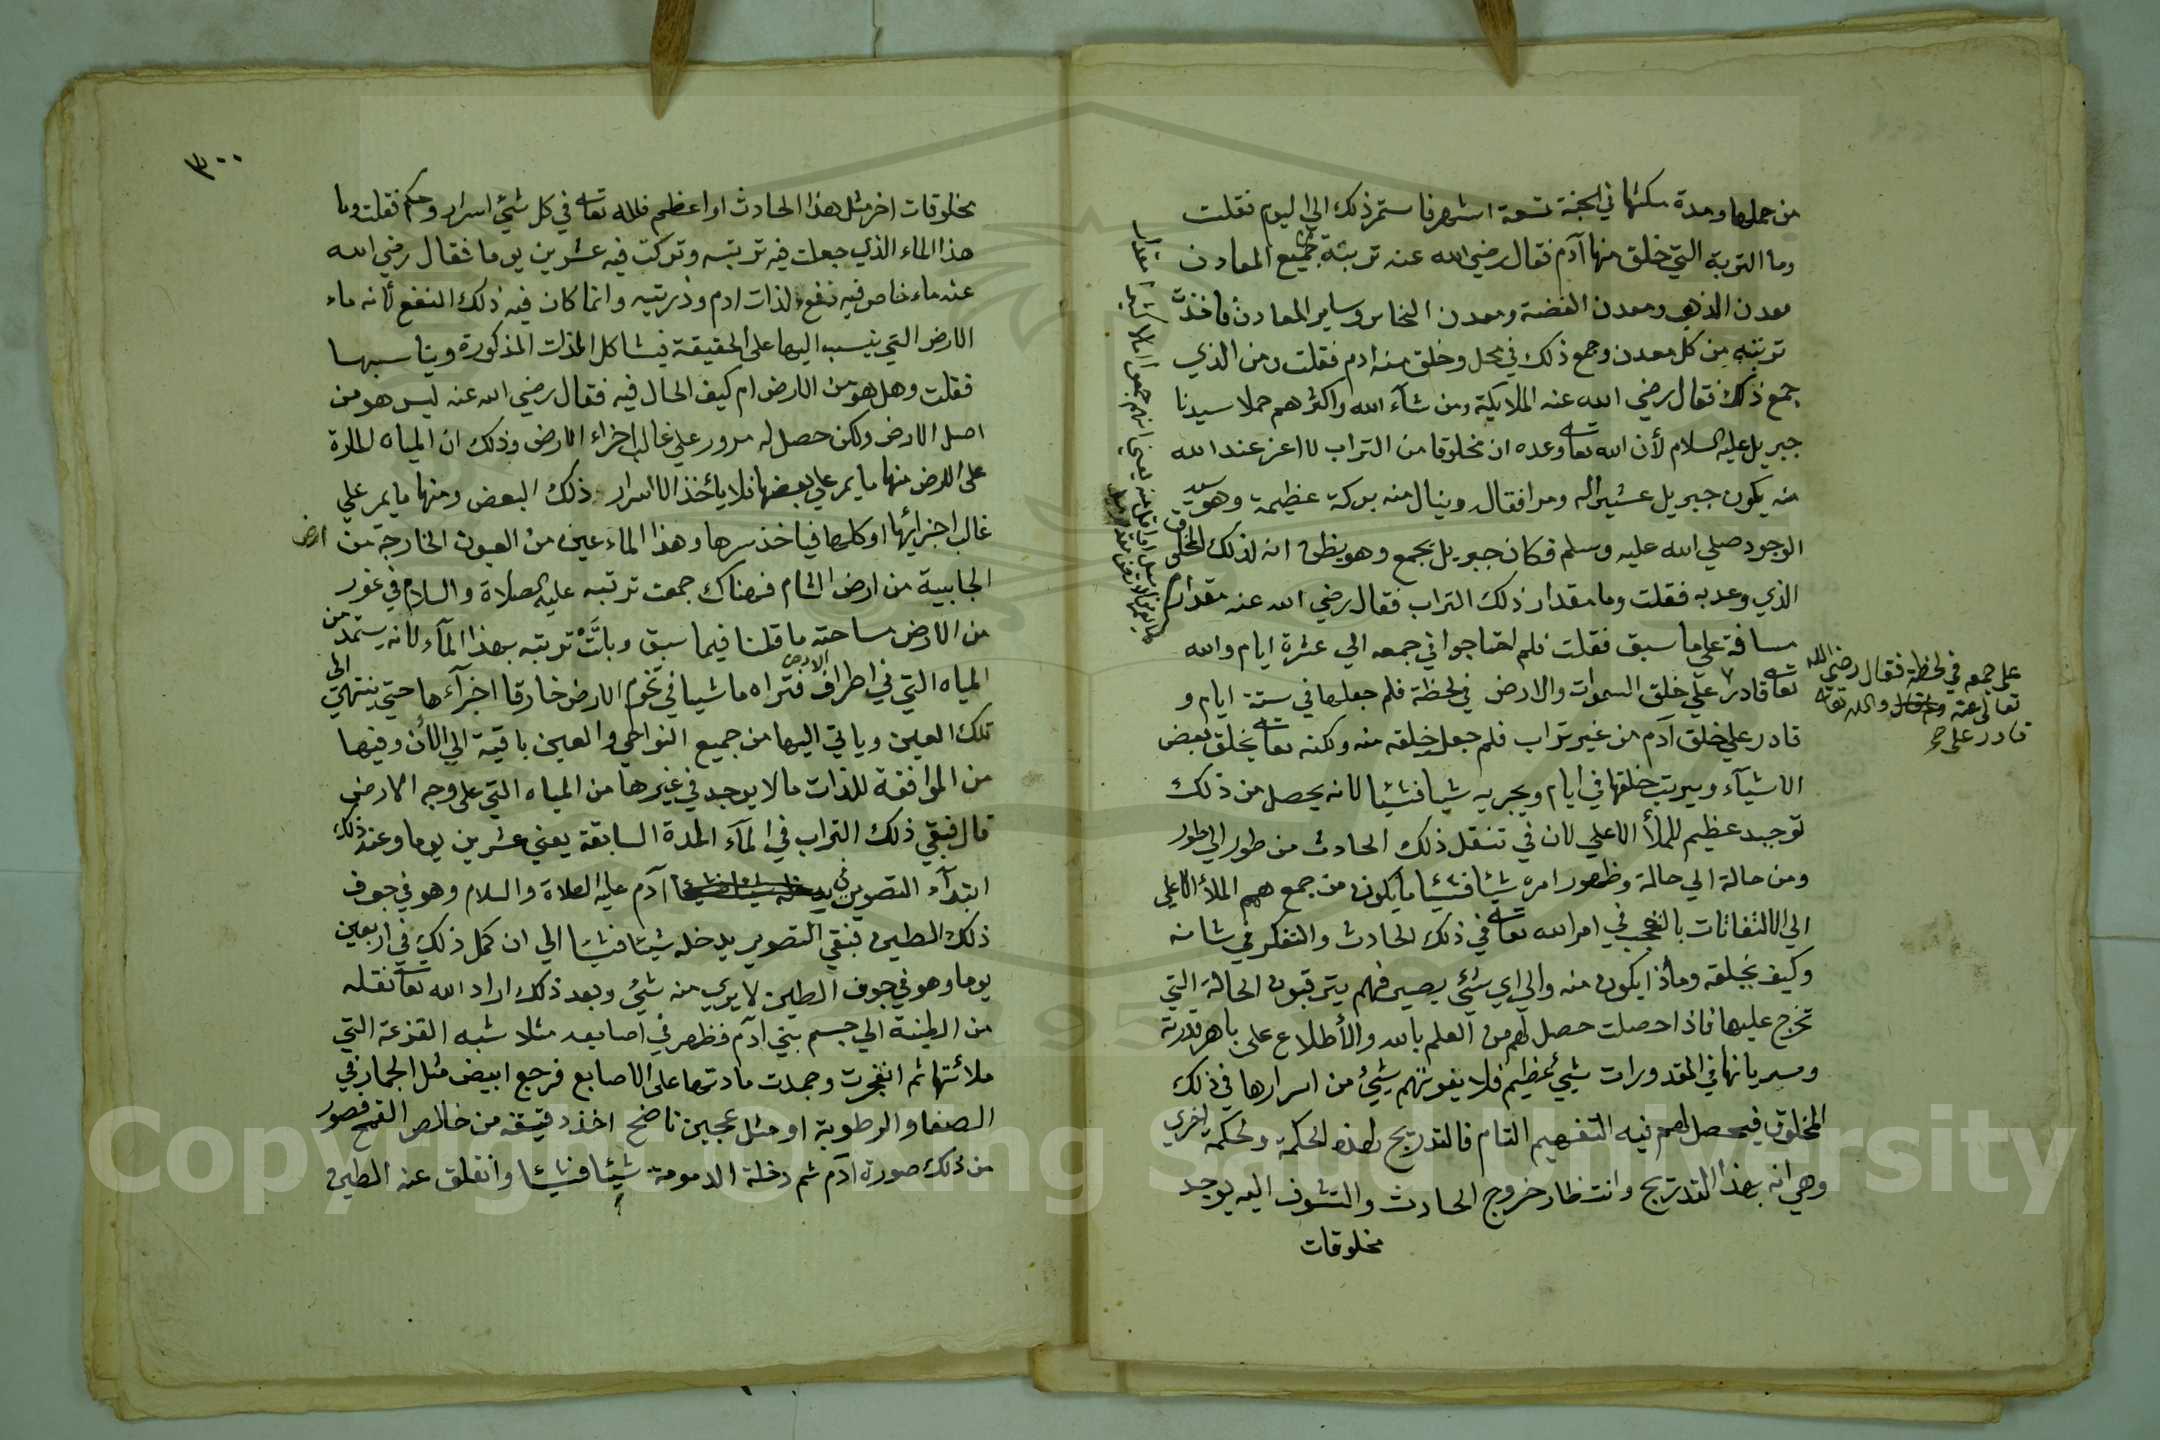 من حملها ومدة مكثها في الجنة تسعة اشهر فاستمر ذلك الي اليوم فقلت
وما التربة التي خلق منها آدم فقال رضي الله عنه تربته جميع المعادن
معدن الذهب ومعدن الفضة ومعدن النحاس وساير المعادن فاخذت
تربته من كل معدن وجمع ذلك في محل وخلق منه ادم فقلت ومن الذي
جمع ذلك فقال رضي الله عنه الملايكة ومن شآء الله واكثرهم حملا سيدنا
جبريل عليه السلام لأن الله تعا وعده ان مخلوقا من التراب لا اعز عند الله
منه يكون جبريل عشيرا له ومرافقا له وينال منه بركة عظيمة وهو سيد
الوجود صلي الله عليه وسلم فكان جبريل يجمع وهو يظن انه لذلك المخلوق
الذي وعد به فقلت وما مقدار ذلك التراب فقال رضي الله عنه مقدار
مسافة علي ما سبق فقلت فلم احتاجوا في جمعه الي عشرة ايام والله
تعا قادر علي خلق السموات والارض في لحظة فلم جعلها في ستة ايام و
قادر علي خلق آدم من غير تراب فلم جعل خلقه منه ولكنه تعا يخلق بعض
الاشيآء ويرتب خلقها في ايام ويجريه شيا فشيا لانه يحصل من ذلك
توحيد عظيم للملأ الاعلي لان في تنقل ذلك الحادث من طور الي طور
ومن حالة الي حالة وظهور امره شيئا فشيئا ما يكون من جمع همم الملأ الاعلي
الي الالتفاتات بالتعجب في امر الله تعا في ذلك الحادث والتفكر في شانه
وكيف يخلقه وماذا يكون منه والي اي شئي يصير فهم يترقبون الحالة التي
تخرج عليها فاذا حصلت حصل لهم من العلم بالله والأطلاع علي باهر قدرته
وسريانها في المقدورات شئي عظيم فلا يفوتهم شيئ من اسرارها في ذلك
المخلوق فيحصل لهم فيه التفهيم التام فالتدريج لهذه الحكمة ولحكمة اخري
وهي انه بهذا التدريج وانتظار خروج الحادث والتشوف اليه يوجد
مخلوقات
علي جمعه في لحظة فقال رضي الله
تعالي عنه والله تعا
قادر علي
٣٠٠
مخلوقات اخر مثل هذا الحادث او اعظم فلله تعا في كل شيئ اسرار وحكم فقلت وما
هذا الماء الذي جعلت فيه تربته وتركت فيه عشرين يوما فقال رضي الله
عنه ماء خاص فيه نفع لذات ادم وذريته وانما كان فيه ذلك النفع لانه ماء
الارض التي ينسب اليها علي الحقيقة فيشاكل الذات المذكورة ويناسبها
فقلت وهل هو من الارض ام كيف الحال فيه فقال رضي الله عنه ليس هو من
اصل الارض ولكن حصل له مرور علي غالب اجزاء الارض وذلك ان المياه المارة
علي الارض منها ما يمر علي بعضها فلا يأخذ الا اسرار ذلك البعض ومنها ما يمر علي
غالب اجزائها او كلها فياخذ سرها وهذا الماء عين من العيون الخارجة من ارض
الجابية من ارض الشام فهناك جمعت تربته عليه الصلاة والسلام في غور
من الارض مساحته ما قلنا فيما سبق وبلت تربته بهذا المآء لانه يستمد من
المياه التي في اطراف الارض فتراه ماشيا في تخوم الارض خارقا اجزآءها حتي ينتهي الي
تلك العين وياتي اليها من جميع النواحي والعين باقية الي الآن وفيها
من الموافقة للذات ما لا يوجد في غيرها من المياه التي علي وجه الارض
قال فبقي ذلك التراب في المآء المدة السابقة يعني عشرين يوما وعند ذلك
ابتدآء التصوير في آدم عليه الصلاة والسلام وهو في جوف
ذلك الطين فبقي التصوير يدخله شيئا فشيئا الي ان كمل ذلك في اربعين
يوما وهو في جوف الطين لا يري منه شيئ وبعد ذلك اراد الله تعا نقله
من الطينة الي جسم بني آدم فظهر في اصابعه مثلا شبه القزعة التي
ملائتها ثم انفجرت وجمدت مادتها علي الاصابع فرجع ابيض مثل الجمار في
الصفا والرطوبة او مثل عجين ناضج اخذ دقيقه من خالص القمح فصور
من ذلك صورة آدم ثم دخلة الدمومة شيئا فشيئا وانفلق عنه الطين
Copyright © King Saud University